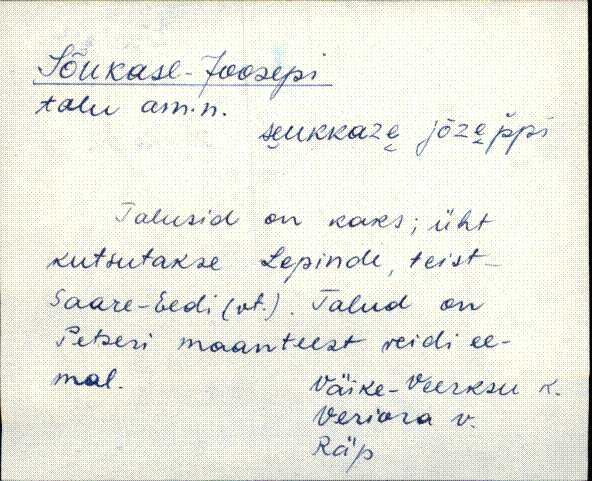 Sõukase-Joosepi
talu am.n.
se̮ukkaze̮ jōze̮ p̆pi
Talusid on kaks; üht
kutsutakse Lepinde, teist -
Saare-Eedi (vt.). Talud on
Petseri maanteest veidi ee-
mal.
Väike-Veerksu k.
Veriora v.
Räp